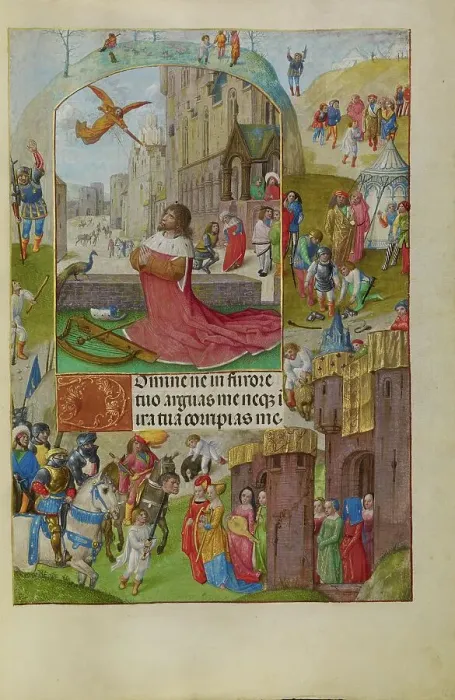 DOmine ne in furore
tuo arguas me neqz i
ira tua corripias me.